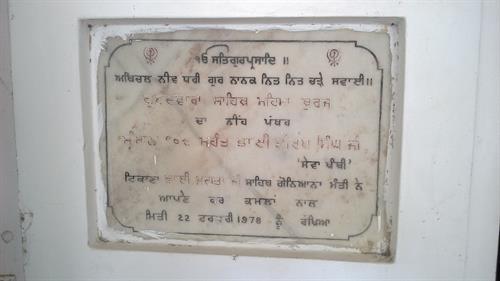 ੴ ਸਤਿਗੁਰਪ੍ਰਸਾਦਿ ॥
ਅਬਿਚਲ ਨੀਵ ਧਰੀ ਗੁਰ ਨਾਨਕ ਨਿਤ ਨਿਤ ਚੜੈ ਸਵਾਈ॥
ਗੁਰਦਵਾਰਾ ਸਾਹਿਬ ਮਹਿਮਾ ਬੁਰਜ
ਦਾ ਨੀਂਹ ਪੱਥਰ
ਸ੍ਰੀਮਾਨ 108 ਮਹੰਤ ਭਾਈ ਸਿੰਘ ਜੀ
'ਸੇਵਾ ਪੰਥੀ'
ਟਿਕਾਣਾ ਭਾਈ ਜਗਤਾ ਜੀ ਸਾਹਿਬ ਗੋਨਿਆਨਾ ਮੰਡੀ ਨੇ
ਆਪਣੇ ਕਰ ਕਮਲਾਂ ਨਾਲ
ਮਿਤੀ 22 ਫਰਵਰੀ 1978 ਨੂੰ ਰੱਖਿਆ